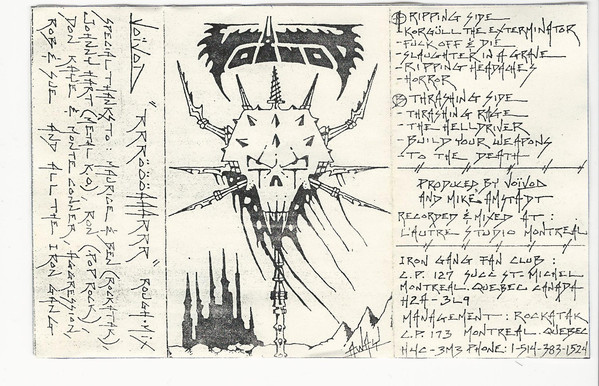 VOÏVOD "RRRÖÖÖAAARRR" ROUGHMIX
SPECIAL THANKS TO : MAURICE & BEN (ROCKATAK),
JOHNNY HART (METAL K.O), RON (POP ROCK),
DON KAYE & MONTE CONNER, AGGRESSION,
ROB & SUE AND ALL THE IRON GANG
VOIVOD
AWAY
Ⓐ RIPPING SIDE
- KORGÜLL THE EXTERMINATOR
- FUCK OFF & DIE
- SLAUGHTER IN A GRAVE
- RIPPING HEADACHES
- HORROR
Ⓑ THRASHING SIDE
- THRASHING RAGE
- THE HELLDRIVER
- BUILD YOUR WEAPONS
- TO THE DEATH
PRODUCED BY VOÏVOD
AND MIKE AMSTADT
RECORDED & MIXED AT :
L'AUTRE STUDIO MONTREAL
IRON GANG FAN CLUB :
C.P. 127 SUCC ST-MICHEL
MONTREAL. QUEBEC CANADA
H2A-3L9
MANAGEMENT : ROCKATAK
C.P. 173 MONTREAL. QUEBEC
H4C-3M3 PHONE: 1-514-383-1524